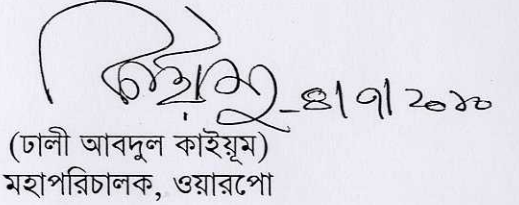 কাইয়ুম -৪/৭/২০১০
(ঢালী আবদুল কাইয়ূম)
মহাপরিচালক, ওয়ারপো